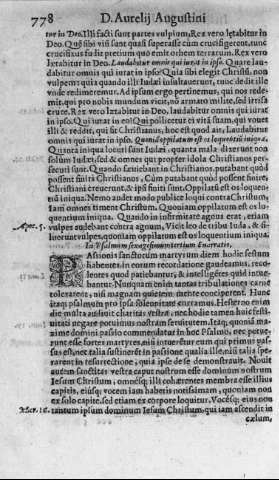 778 D. Aurelij Augustini
tur in Deo. Illi facti sunt partes vulpium, Rex vero lętabitur in
Deo. Quę sibi visi sunt quasi superasse cum crucifigerent, tunc
crucifixus fudit pretium quo emit orbem terrarum. Rex vero
lætabitur in Deo. Laudabitur omnis qui iurat in ipso. Quare laudabitur
omnis qui iurat in ipso? Quia sibi elegit Christũ, non
vulpem: quia quando illi Iudæi insultauerunt, tunc de dit ille
vnde redimeremur. Ad ipsum ergo pertinemus, qui nos redemit,
qui pro nobis mundum vicit, nõ armato milite, sed irrisa
cruce. Rex vero lætabitur in Deo, laudabitur omnis qui iurat
in ipso. Qui iurat in eo? Qui pollicetur ei vitã suam, qui vouet
illi & reddit, qui fit Christianus, hoc est quod ait, Laudabitur
omnis qui iurat in ipso. Quoniã oppilatum est os loquentiũ iniqua.
Quanta iniqua locuti sunt Iudæi: quanta mala dixerunt non
solùm Iudæi, sed & omnes qui propter idola Christianos persecuti
sunt. Quando sæuiebant in Christianos, putabant quòd
possent finiri Christianos, Cùm putabant quòd possent finiri,
Christiani creuerunt, & ipsi finiti sunt. Oppilatũ est os loquentiũ
iniqua. Nemo audet modo publice loqui contra Christum,
Iam omnes timent Christum. Quoniam oppilatum est os loquentium
iniqua. Quando in infirmitate agnus erat, etiam
Apoc. 5. vulpes audebant contra agnum, Vicit leo de tribu Iuda, &
In Psalmum sexagesimumtertium Enarratio.
PAssionis sanctorum martyrum diem hodie festum
habentes in eorum recordatione gaudeamus, recolentes
quod patiebantur, & intelligẽtes quid intuebantur.
Nunquam enim tantas tribulationes carne
tolerarent, nisi magnam quietem mente conciperent. Hunc
itaq; psalmum pro ipsa solennitate curramus. Hesterno enim
die multa audiuit charitas vestra, nec hodie tamen huic festiuitati
negare potuimus nostram seruitutem. Itaq; quoniã maxime
domini passio commendatur in hoc Psalmo, nec potuerunt
esse fortes martyres, nisi intuerẽtur eum qui primus passus
est, nec talia sustinerẽt in passione qualia ille, nisi talia sperarent
in resurrectione, quia ipse de se demonstrauit. Nouit
autem sanctitas vestra caput nostrum esse dominum nostrum
Iesum Christum, omnesq; illi cohærentes membra esse illius
capitis, eiusq; vocem iam habetis notissimam, quoniam non
ex solo capite, sed etiam ex corpore loquitur. Vocesq; eius non
tantum ipsum dominum Iesum Christum, qui iam ascendit in
cælum,